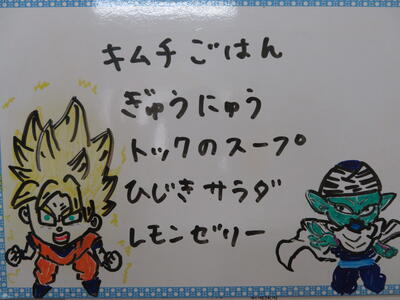 キムチごはん
ぎゅうにゅう
トックのスープ
ひじきサラダ
レモンゼリー